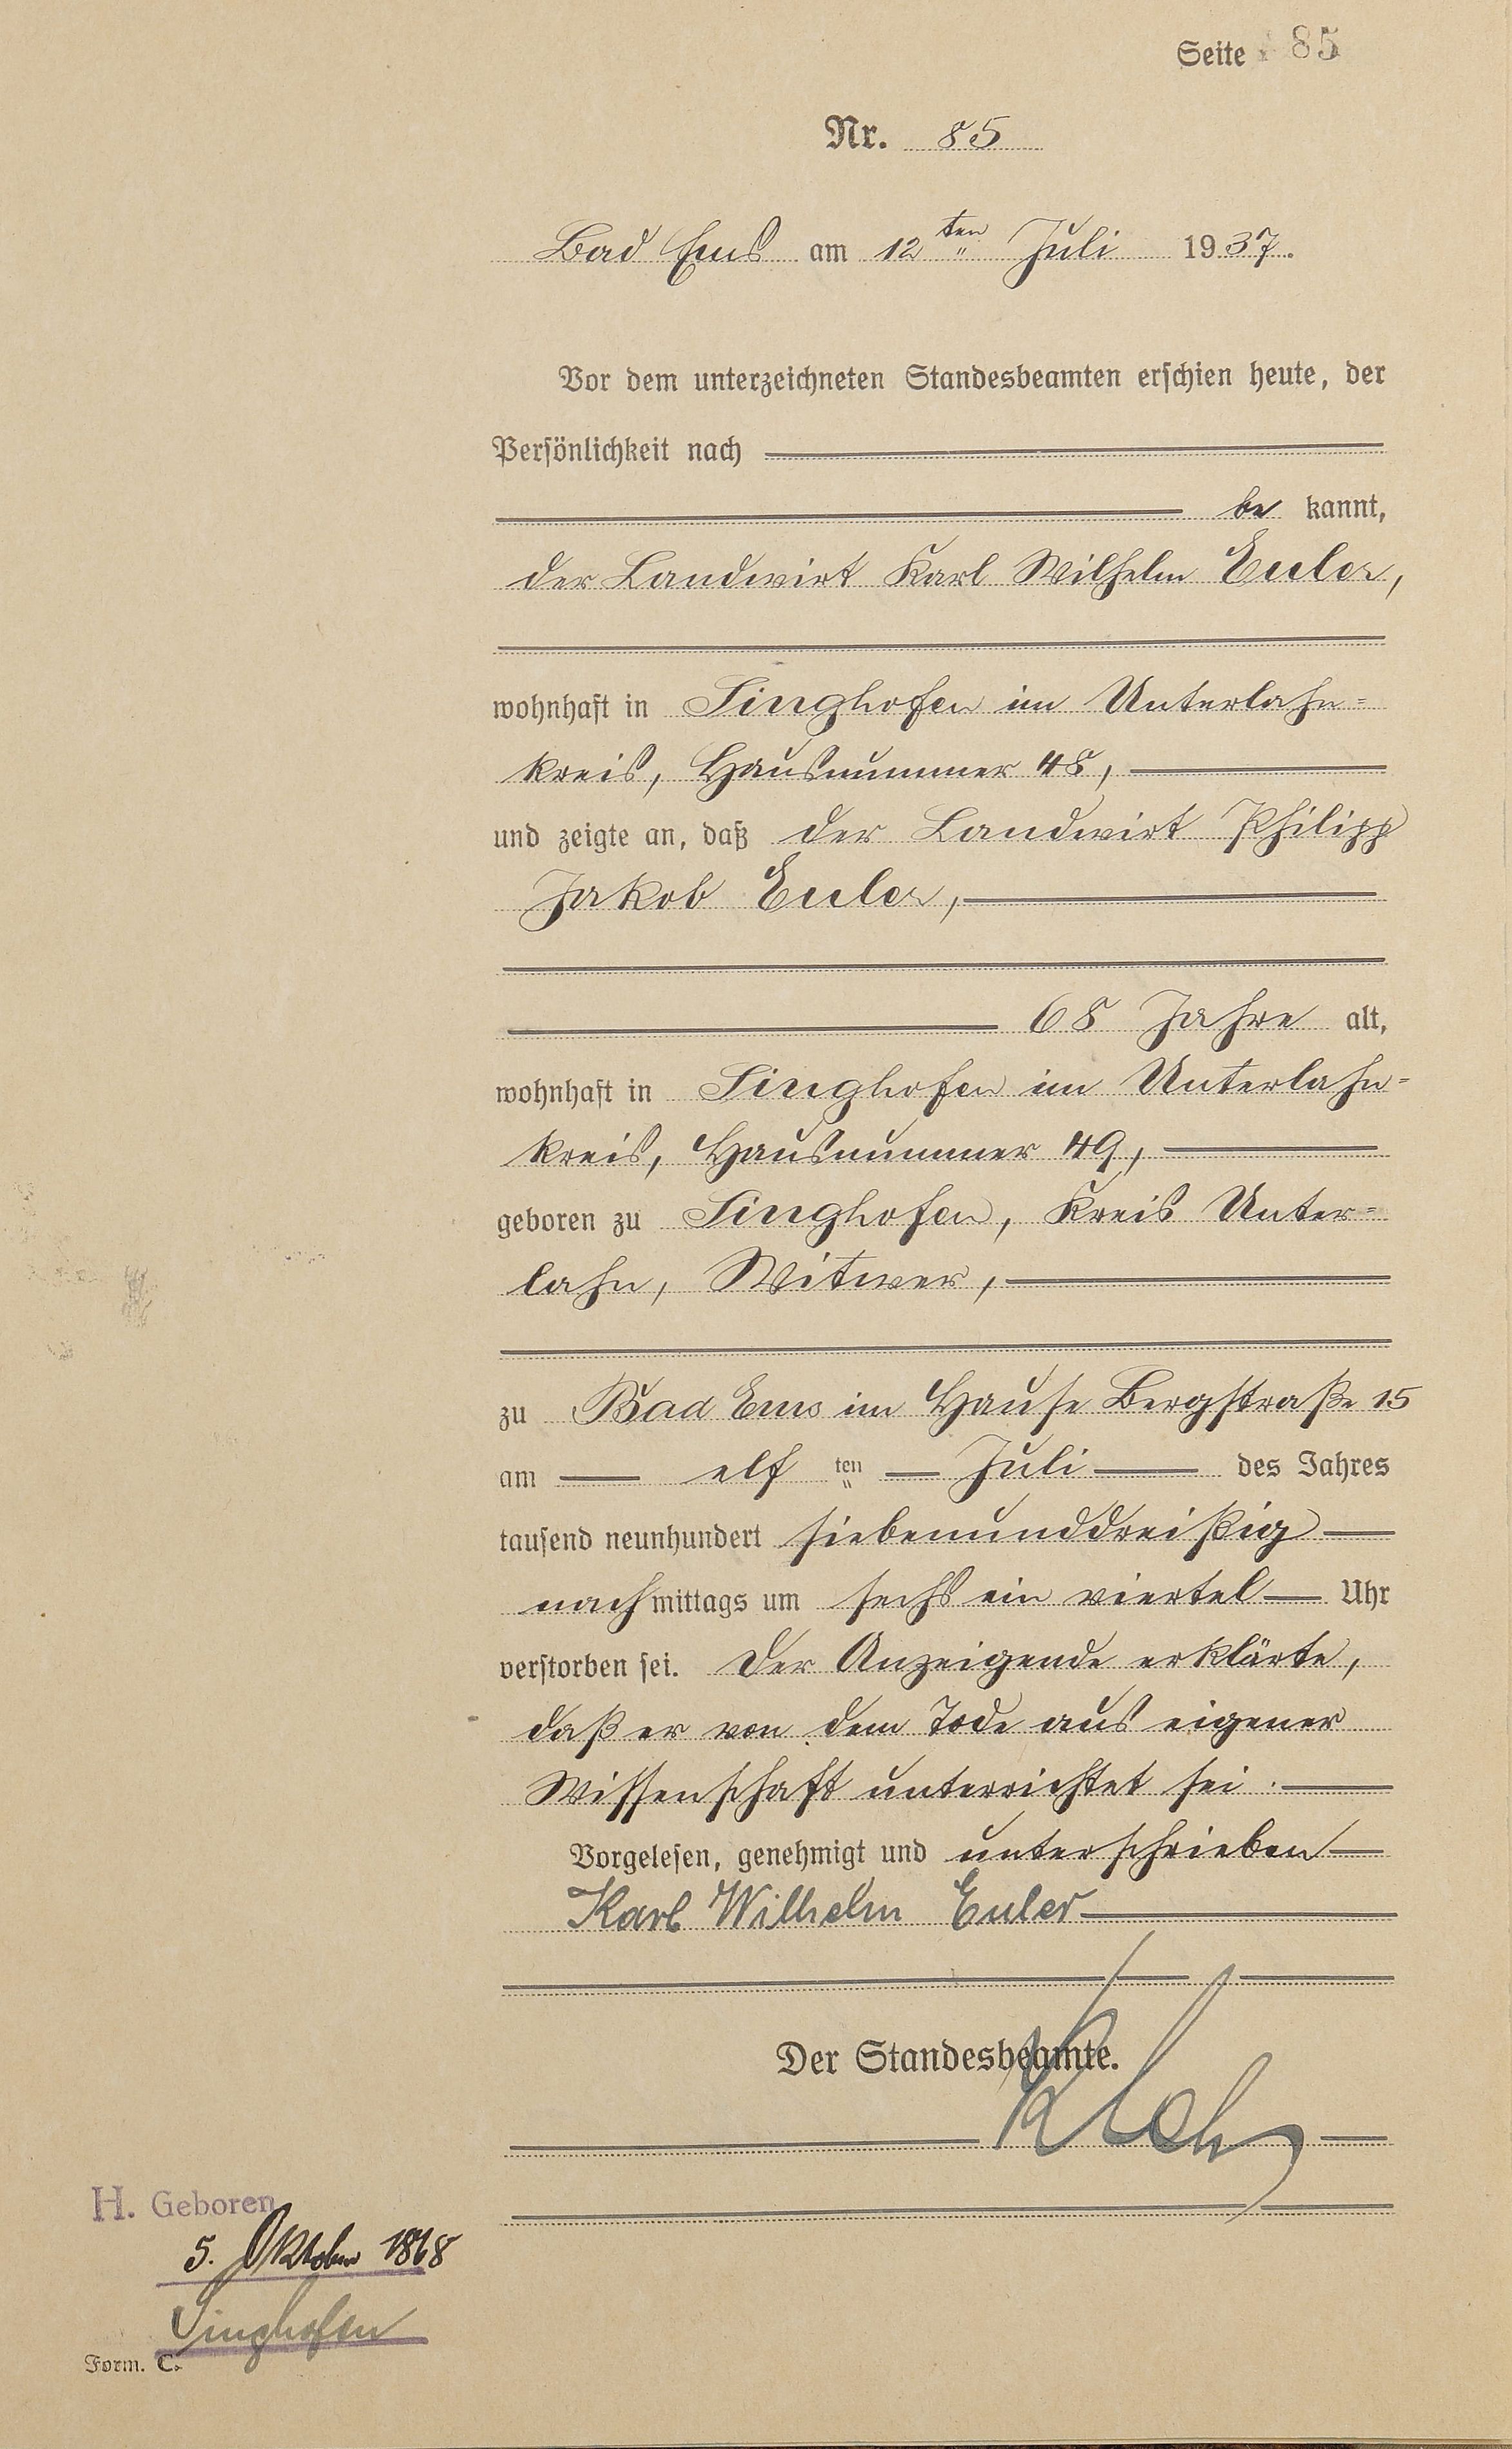 Seite 85
Nr. 85
Bad Ems am 12ten Juli 1937.
Vor dem unterzeichneten Standesbeamten erschien heute, der
Persönlichkeit nach
be kannt,
der Landwirt Karl Wilhelm Euler,
wohnhaft in Singhofen im Unterlahn=
kreis, Hausnummer 48,
und zeigte an, daß der Landwirt Philipp
Jakob Euler,
68 Jahre alt,
wohnhaft in Singhofen im Unterlahn=
kreis, Hausnummer 49,
geboren zu Singhofen, Kreis Unter=
lahn, Witwer,
zu Bad Ems im Hause Bergstraße 15
am elf ten Juli des Jahres
tausend neunhundert siebenunddreißig
nachmittags um sechs ein viertel Uhr
verstorben sei. Der Anzeigende erklärte,
daß er von dem Tode aus eigener
Wissenschaft unterrichtet sei.
Vorgelesen, genehmigt und unterschrieben
Karl Wilhelm Euler
Der Standesbeamte.
H. Geboren
5. Oktober 1868
Singhofen
Form. C.